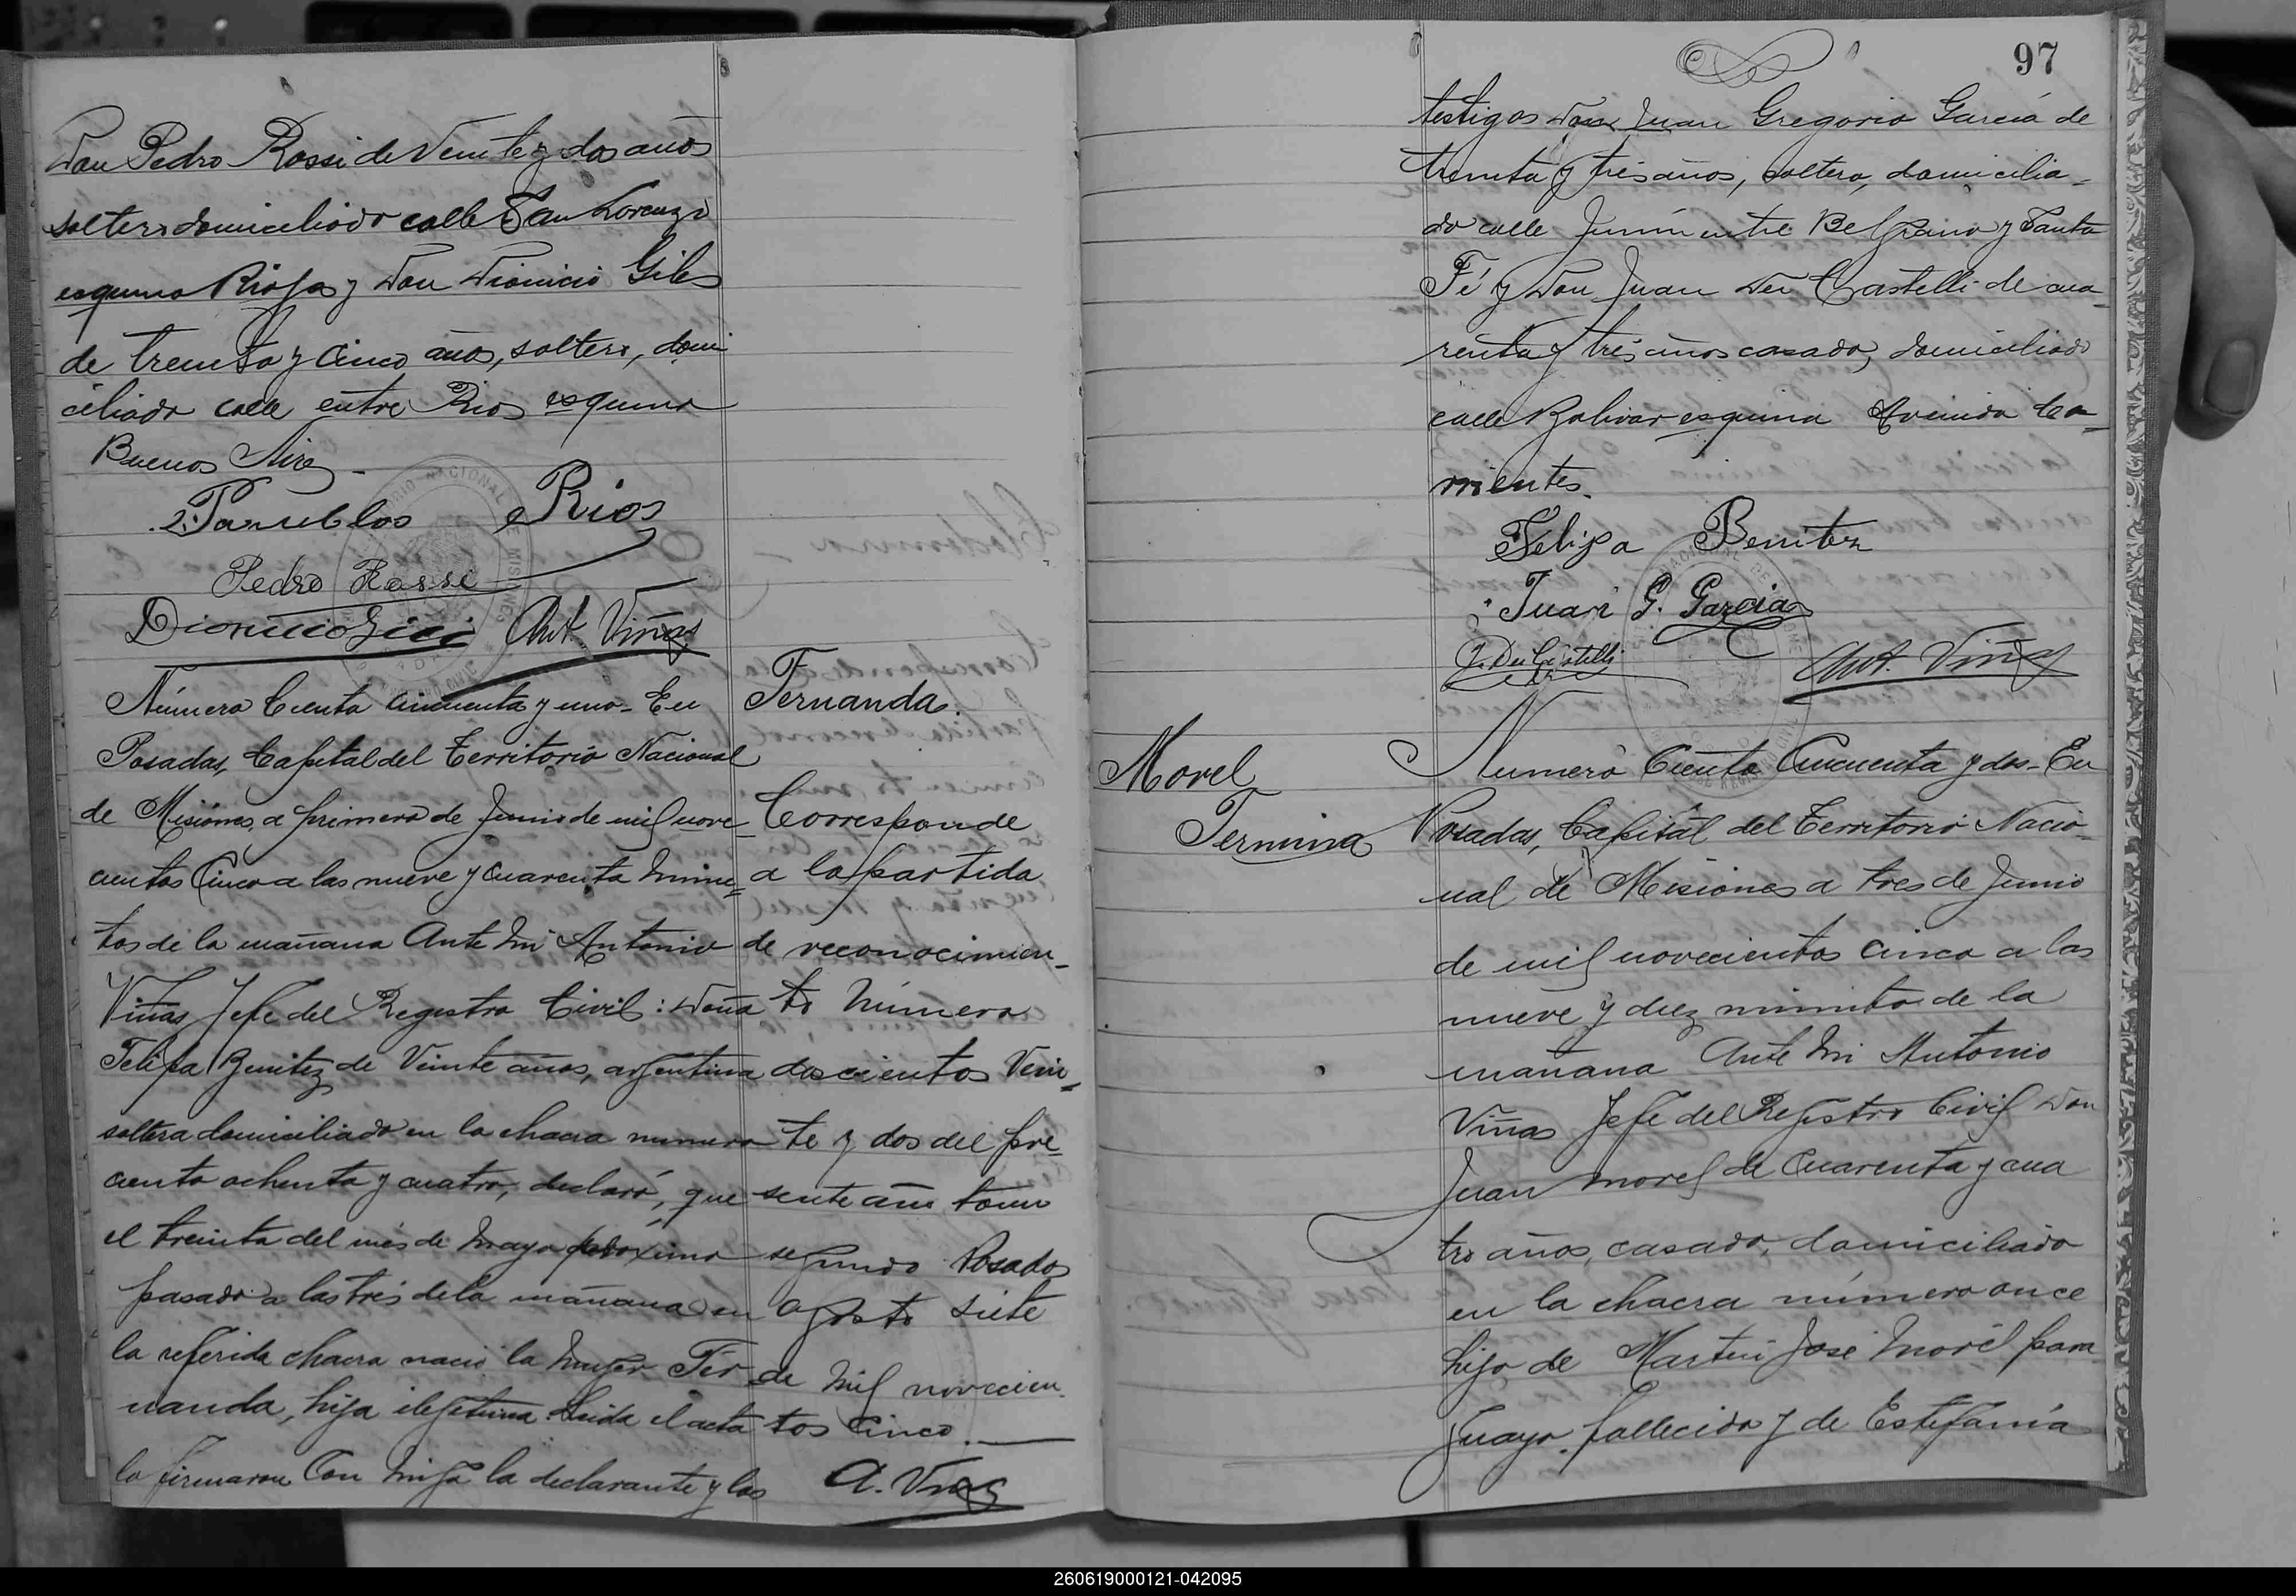 Don Pedro Rossi de Veinte y dos años
soltero domiciliado calle San Lorenzo
esquina Rioja y Don Dionicio Giles
de treinta y cinco años, soltero, domi
ciliado calle entre Rios esquina
Buenos Aires
Rios
Pedro Rossi
Ant. Viñas
Número Ciento Cincuenta y uno - En
Posadas, Capital del Territorio Nacional
de Misiones, a primero de Junio de mil nove
cientos Cinco a las nueve y cuarenta minu=
tos de la mañana Ante Mi Antonio
Viñas Jefe del Registro Civil: Doña
Felipa Benitez de Veinte años, argentina
soltera domiciliado en la chacra numero
ciento ochenta y cuatro, declaró, que
el treinta del més de Mayo próximo
pasado a las trés de la mañana en
la referida chacra nació la Mujer Fer
nanda, hija ilegitima. Leida el acta
la firmaron Con Migo la declarante y los
Fernanda.
Corresponde
a la partida
de reconocimien-
to Número
doscientos Vein=
te y dos del pre=
sente año tomo
segundo Posadas
Agosto siete
de Mil novecien
tos Cinco.
A. Viñas
97
testigos Don Juan Gregorio García de
treinta y trés años, soltero, domicilia-
do calle Junín entre Belgrano y Santa
Fé y Don Juan Dei Castelli de cua-
renta y trés años casado, domiciliado
calle Bolivar esquina Avenida Co-
rrientes.
Felipa Benitez
Juan G. Garcia
J. Dei Castelli
Ant. Viñas
Morel
Fermina
Número Ciento Cincuenta y dos - En
Posadas, Capital del Territorio Nacio-
nal de Misiones a tres de Junio
de mil novecientos cinco a las
nueve y diez minutos de la
mañana Ante Mi Antonio
Viñas Jefe del Registro Civil Don
Juan Morel de Cuarenta y cua
tro años, casado, domiciliado
en la chacra número once
hijo de Martin José Morel para
guayo, fallecido y de Estefanía
260619000121-042095